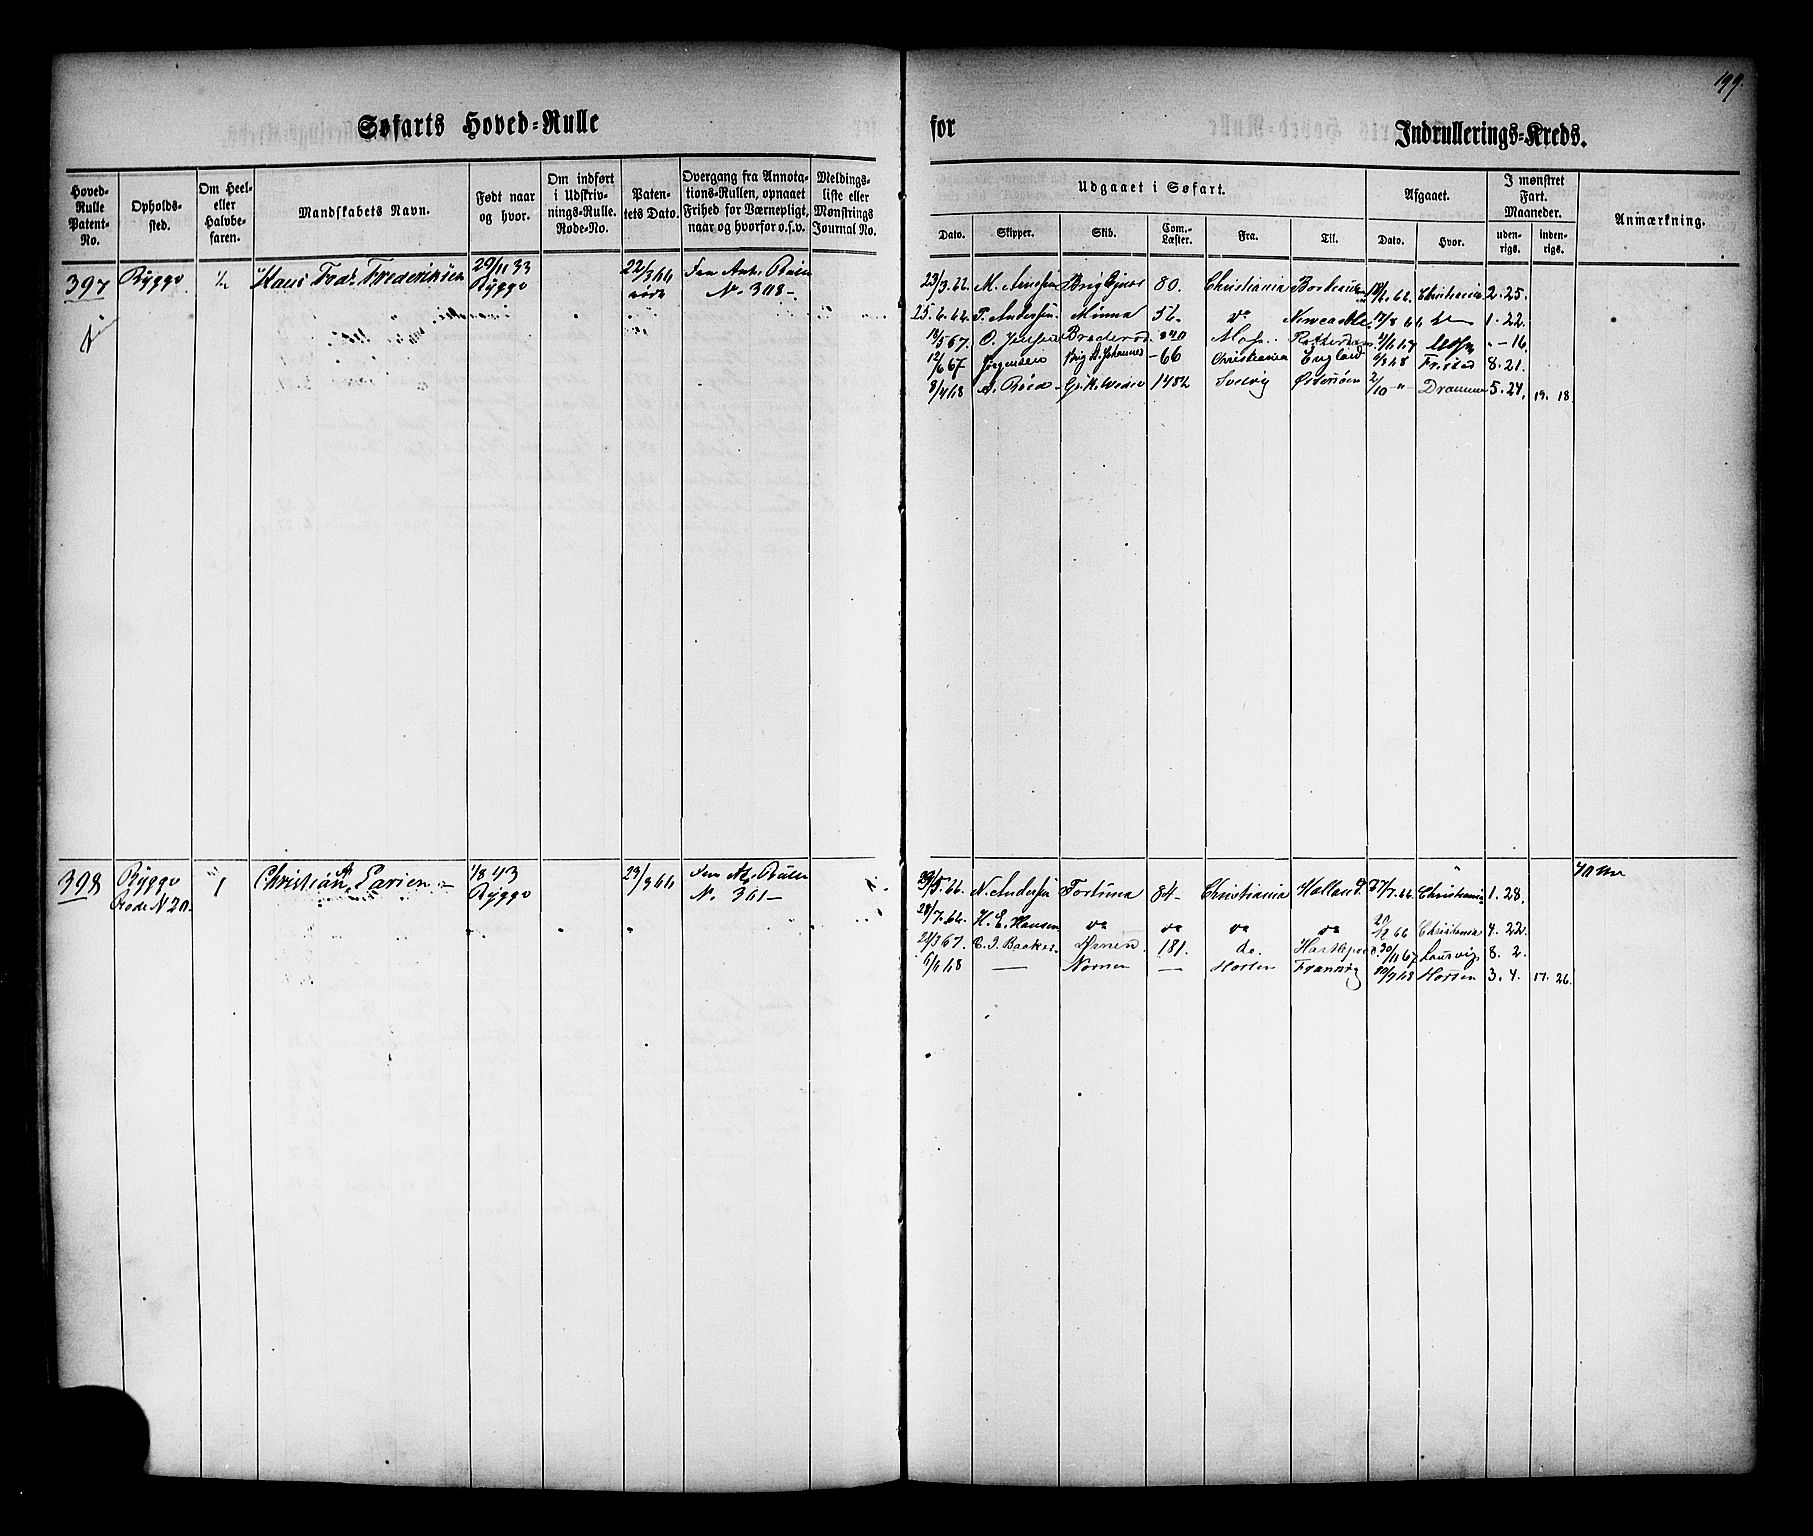 199.
Søfarts Hoved=Rulle for Indrullerings=Kreds.
Hoved-Rulle Patent-No.
Opholds-sted.
Om Heel- eller Halvbe-faren.
Mandskabets Navn.
Født naar og hvor.
Om indført i Udskriv-nings-Rulle. Rode-No.
Paten-tets Dato.
Overgang fra Annota-tions-Rullen, opnaaet Frihed for Værnepligt, naar og hvorfor o.s.v.
Meldings-liste eller Mønstrings Journal No.
Udgaaet i Søfart.
Dato. Skipper. Skib. Com.-Læster. Fra. Til.
Afgaaet.
Dato. Hvor.
I mønstret Fart. Maaneder.
uden-rigs. inden-rigs.
Anmærkning.
397 Rygge ½ Hans Fredr Frederiksen 29/11 33 Rygge 22/3 66 Fra Ant. Rullen No. 308
23/3 66. Brig 80. Christiania 2. 25.
25/6 66. P. Andersen Minna 56. do Newcastle 17/8 66 do 1. 22.
O. Jensen Moss Rotterdam Moss " - 16.
12/6 67 Jørgensen Brig St. Johannes - 66 Christiania England Fr.stad 8. 21.
8/4 68 A. Röed Svelvig Østersöen 2/10 " Drammen 5. 24. 19. 18
398 Rygge Rode N 20 1 Christian A. Larsen 1/8 43 Rygge 23/3 66 Fra At. Rullen No. 361
N. Andersen Fortuna 84 Christiania Holland 27/7 66 Christiania 1. 28.
28/7 66. H. E. Hansen do do do do Christiania 4. 22.
C. J. Backer 181. do. Hartlepool 30/11 67 Laurvig 8. 2.
Nornen Horten Horten 3. 4. 17. 26.